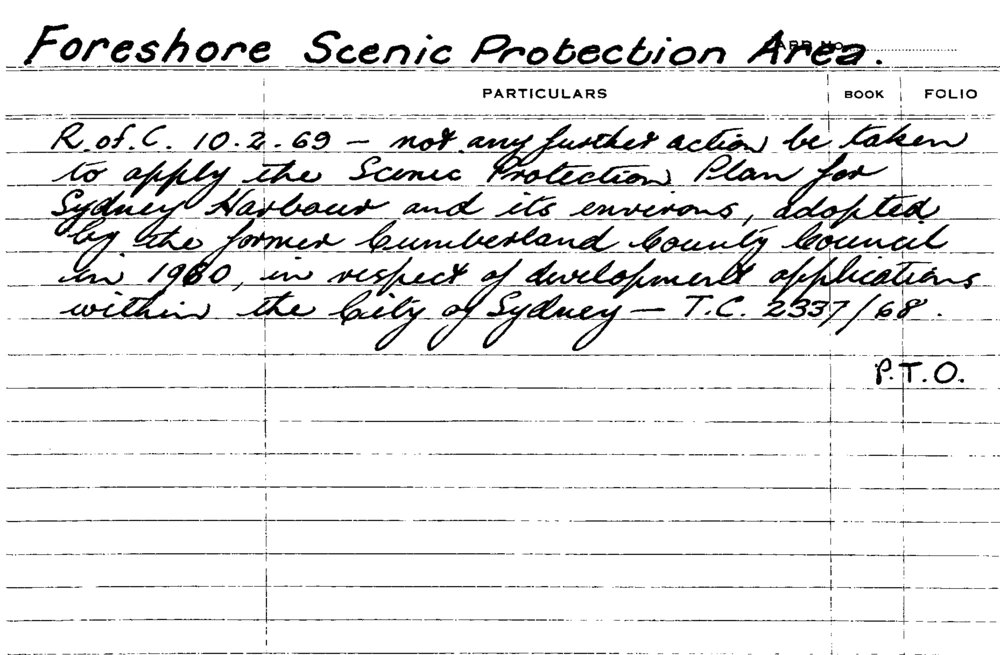 Foreshore Scenic Protection Area.
CARD No.
PARTICULARS BOOK FOLIO
R. of. C. 10.2.69 – not any further action be taken
to apply the Scenic Protection Plan for
Sydney Harbour and its environs, adopted
by the former Cumberland County Council
in 1960, in respect of development applications
within the City of Sydney – T.C. 2337/68.
P.T.O.